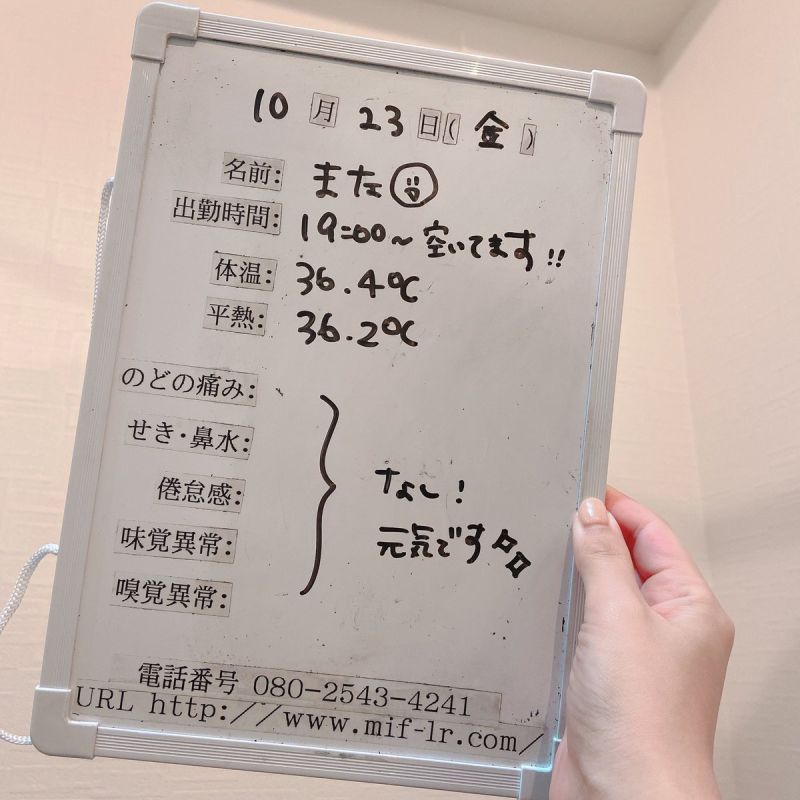 10月23日(金)
名前: また
出勤時間: 19:00~ 空いてます!!
体温: 36.4℃
平熱: 36.2℃
のどの痛み:
せき・鼻水:
倦怠感: なし!
味覚異常: 元気です
嗅覚異常:
電話番号 080-2543-4241
URL http://www.mif-lr.com/